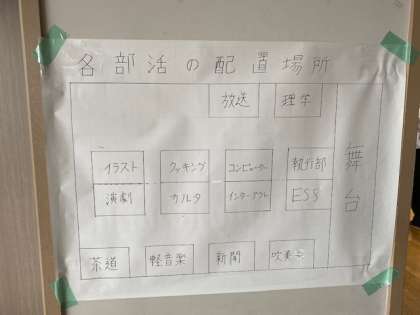 各部活の配置場所
放送 理学
イラスト クッキング コンピューター 執行部
演劇 カルタ インターアクト ESS
茶道 軽音楽 新聞 吹奏楽
舞台